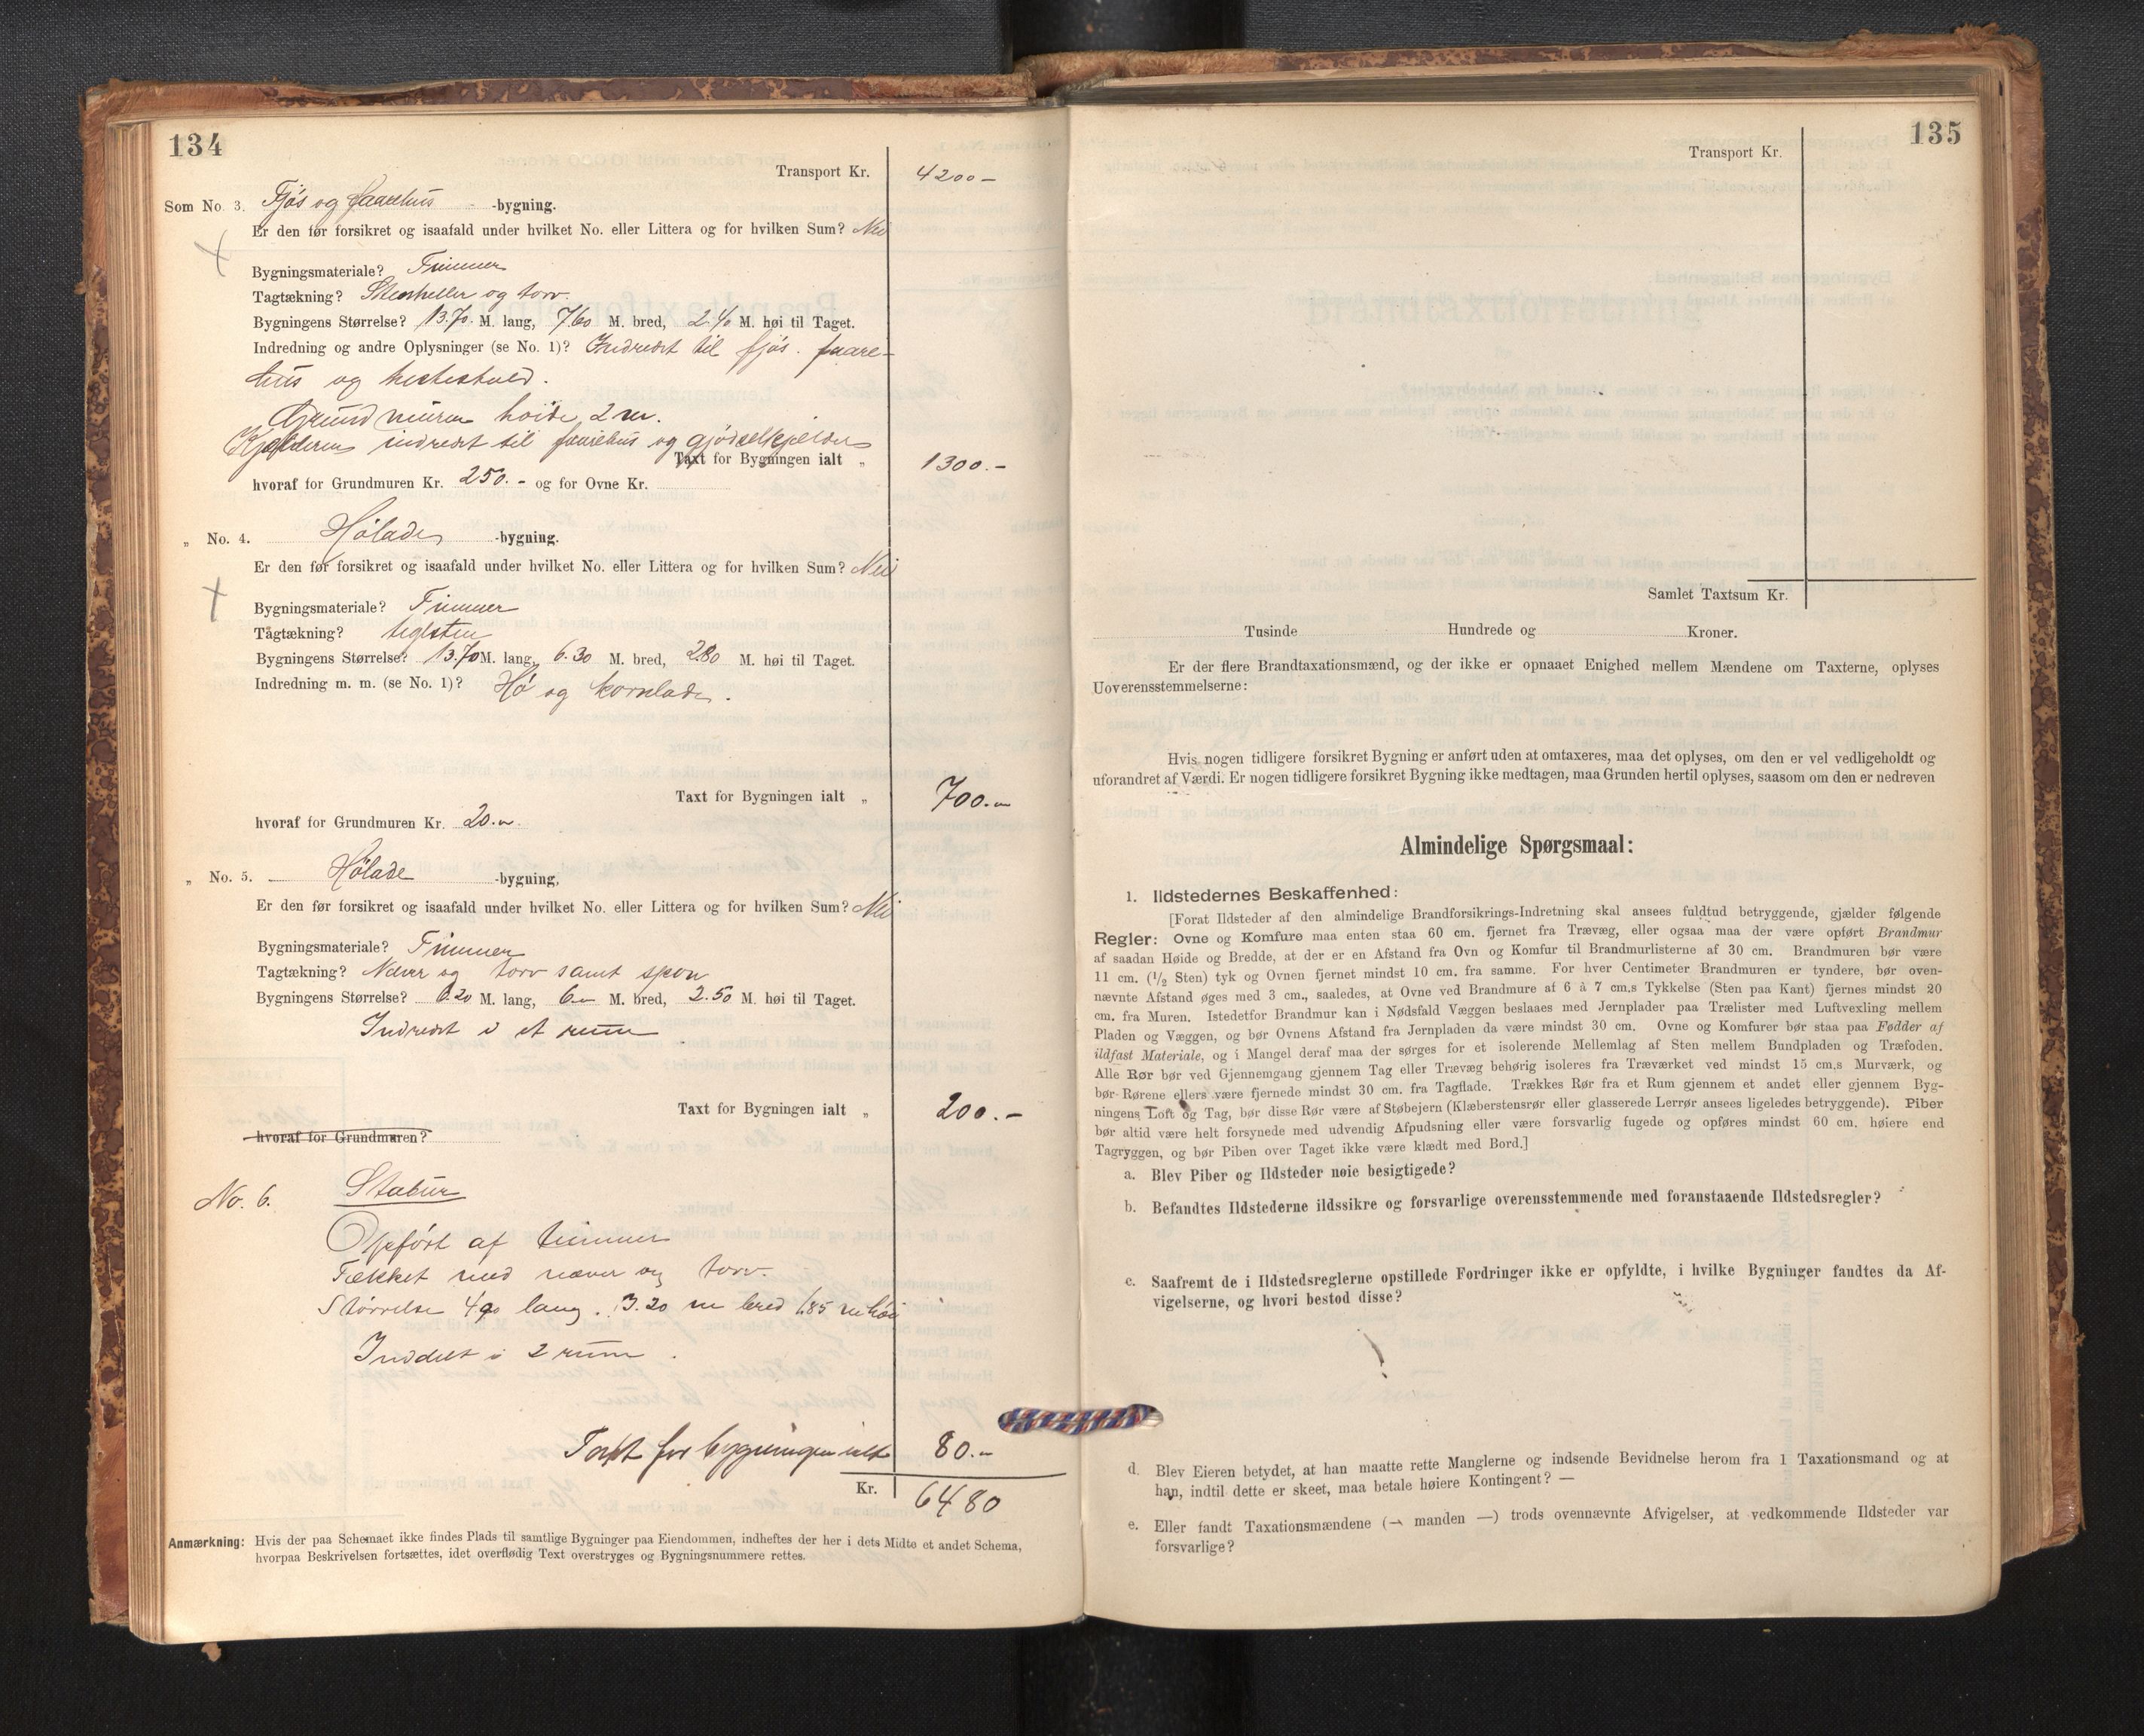 134
Transport Kr. 4200 –
Som No. 3. Fjøs og faarehus -bygning.
Er den før forsikret og isaafald under hvilket No. eller Littera og for hvilken Sum? Nei
Bygningsmateriale? Timmer
Tagtækning? Stenheller og torv.
Bygningens Størrelse? 13.70 M. lang, 7.60 M. bred, 2.40 M. høi til Taget.
Indredning og andre Oplysninger (se No. 1)? Indredet til fjøs. faare-
hus og hestestald.
Grundmuren høide 2 m.
Kjælderen indredet til faarehus og gjødselkjælder
Taxt for Bygningen ialt „ 1300.–
hvoraf for Grundmuren Kr. 250.– og for Ovne Kr.
„ No. 4. Hølade -bygning.
Er den før forsikret og isaafald under hvilket No. eller Littera og for hvilken Sum? Nei
Bygningsmateriale? Timmer
Tagtækning? teglsten
Bygningens Størrelse? 13.70 M. lang, 6.30 M. bred, 2.80 M. høi til Taget.
Indredning m. m. (se No. 1)? Hø og kornlade.
Taxt for Bygningen ialt „ 700.–
hvoraf for Grundmuren Kr. 20.–
„ No. 5. Hølade -bygning,
Er den før forsikret og isaafald under hvilket No. eller Littera og for hvilken Sum? Nei
Bygningsmateriale? Timmer
Tagtækning? Næver og torv samt spon
Bygningens Størrelse? 6.20 M. lang, 6.– M. bred, 2.50 M. høi til Taget.
Indredet i et rum
Taxt for Bygningen ialt „ 200.–
hvoraf for Grundmuren?
No. 6. Stabur
Opført af timmer
Tækket med næver og torv.
Størrelse 4.90 lang. 3.20 m bred 1.85 m høi
Inddelt i 2 rum.
Taxt for bygningen ialt 80.–
Kr. 6480
Anmærkning: Hvis der paa Schemaet ikke findes Plads til samtlige Bygninger paa Eiendommen, indheftes der her i dets Midte et andet Schema,
hvorpaa Beskrivelsen fortsættes, idet overflødig Text overstryges og Bygningsnummere rettes.
135
Transport Kr.
Samlet Taxtsum Kr.
Tusinde Hundrede og Kroner.
Er der flere Brandtaxationsmænd, og der ikke er opnaaet Enighed mellem Mændene om Taxterne, oplyses
Uoverensstemmelserne:
Hvis nogen tidligere forsikret Bygning er anført uden at omtaxeres, maa det oplyses, om den er vel vedligeholdt og
uforandret af Værdi. Er nogen tidligere forsikret Bygning ikke medtagen, maa Grunden hertil oplyses, saasom om den er nedreven
Almindelige Spørgsmaal:
1. Ildstedernes Beskaffenhed:
[Forat Ildsteder af den almindelige Brandforsikrings-Indretning skal ansees fuldtud betryggende, gjælder følgende
Regler: Ovne og Komfure maa enten staa 60 cm. fjernet fra Trævæg, eller ogsaa maa der være opført Brandmur
af saadan Høide og Bredde, at der er en Afstand fra Ovn og Komfur til Brandmurlisterne af 30 cm. Brandmuren bør være
11 cm. (1/2 Sten) tyk og Ovnen fjernet mindst 10 cm. fra samme. For hver Centimeter Brandmuren er tyndere, bør oven-
nævnte Afstand øges med 3 cm., saaledes, at Ovne ved Brandmure af 6 à 7 cm.s Tykkelse (Sten paa Kant) fjernes mindst 20
cm. fra Muren. Istedetfor Brandmur kan i Nødsfald Væggen beslaaes med Jernplader paa Trælister med Luftvexling mellem
Pladen og Væggen, og bør Ovnens Afstand fra Jernpladen da være mindst 30 cm. Ovne og Komfurer bør staa paa Fødder af
ildfast Materiale, og i Mangel deraf maa der sørges for et isolerende Mellemlag af Sten mellem Bundpladen og Træfoden.
Alle Rør bør ved Gjennemgang gjennem Tag eller Trævæg behørig isoleres fra Træværket ved mindst 15 cm.s Murværk, og
bør Rørene ellers være fjernede mindst 30 cm. fra Tagflade. Trækkes Rør fra et Rum gjennem et andet eller gjennem Byg-
ningens Loft og Tag, bør disse Rør være af Støbejern (Klæberstensrør eller glasserede Lerrør ansees ligeledes betryggende). Piber
bør altid være helt forsynede med udvendig Afpudsning eller være forsvarlig fugede og opføres mindst 60 cm. høiere end
Tagryggen, og bør Piben over Taget ikke være klædt med Bord.]
a. Blev Piber og Ildsteder nøie besigtigede?
b. Befandtes Ildstederne ildssikre og forsvarlige overensstemmende med foranstaaende Ildstedsregler?
c. Saafremt de i Ildstedsreglerne opstillede Fordringer ikke er opfyldte, i hvilke Bygninger fandtes da Af-
vigelserne, og hvori bestod disse?
d. Blev Eieren betydet, at han maatte rette Manglerne og indsende Bevidnelse herom fra 1 Taxationsmand og at
han, indtil dette er skeet, maa betale høiere Kontingent? —
e. Eller fandt Taxationsmændene (— manden —) trods ovennævnte Afvigelser, at vedkommende Ildsteder var
forsvarlige?